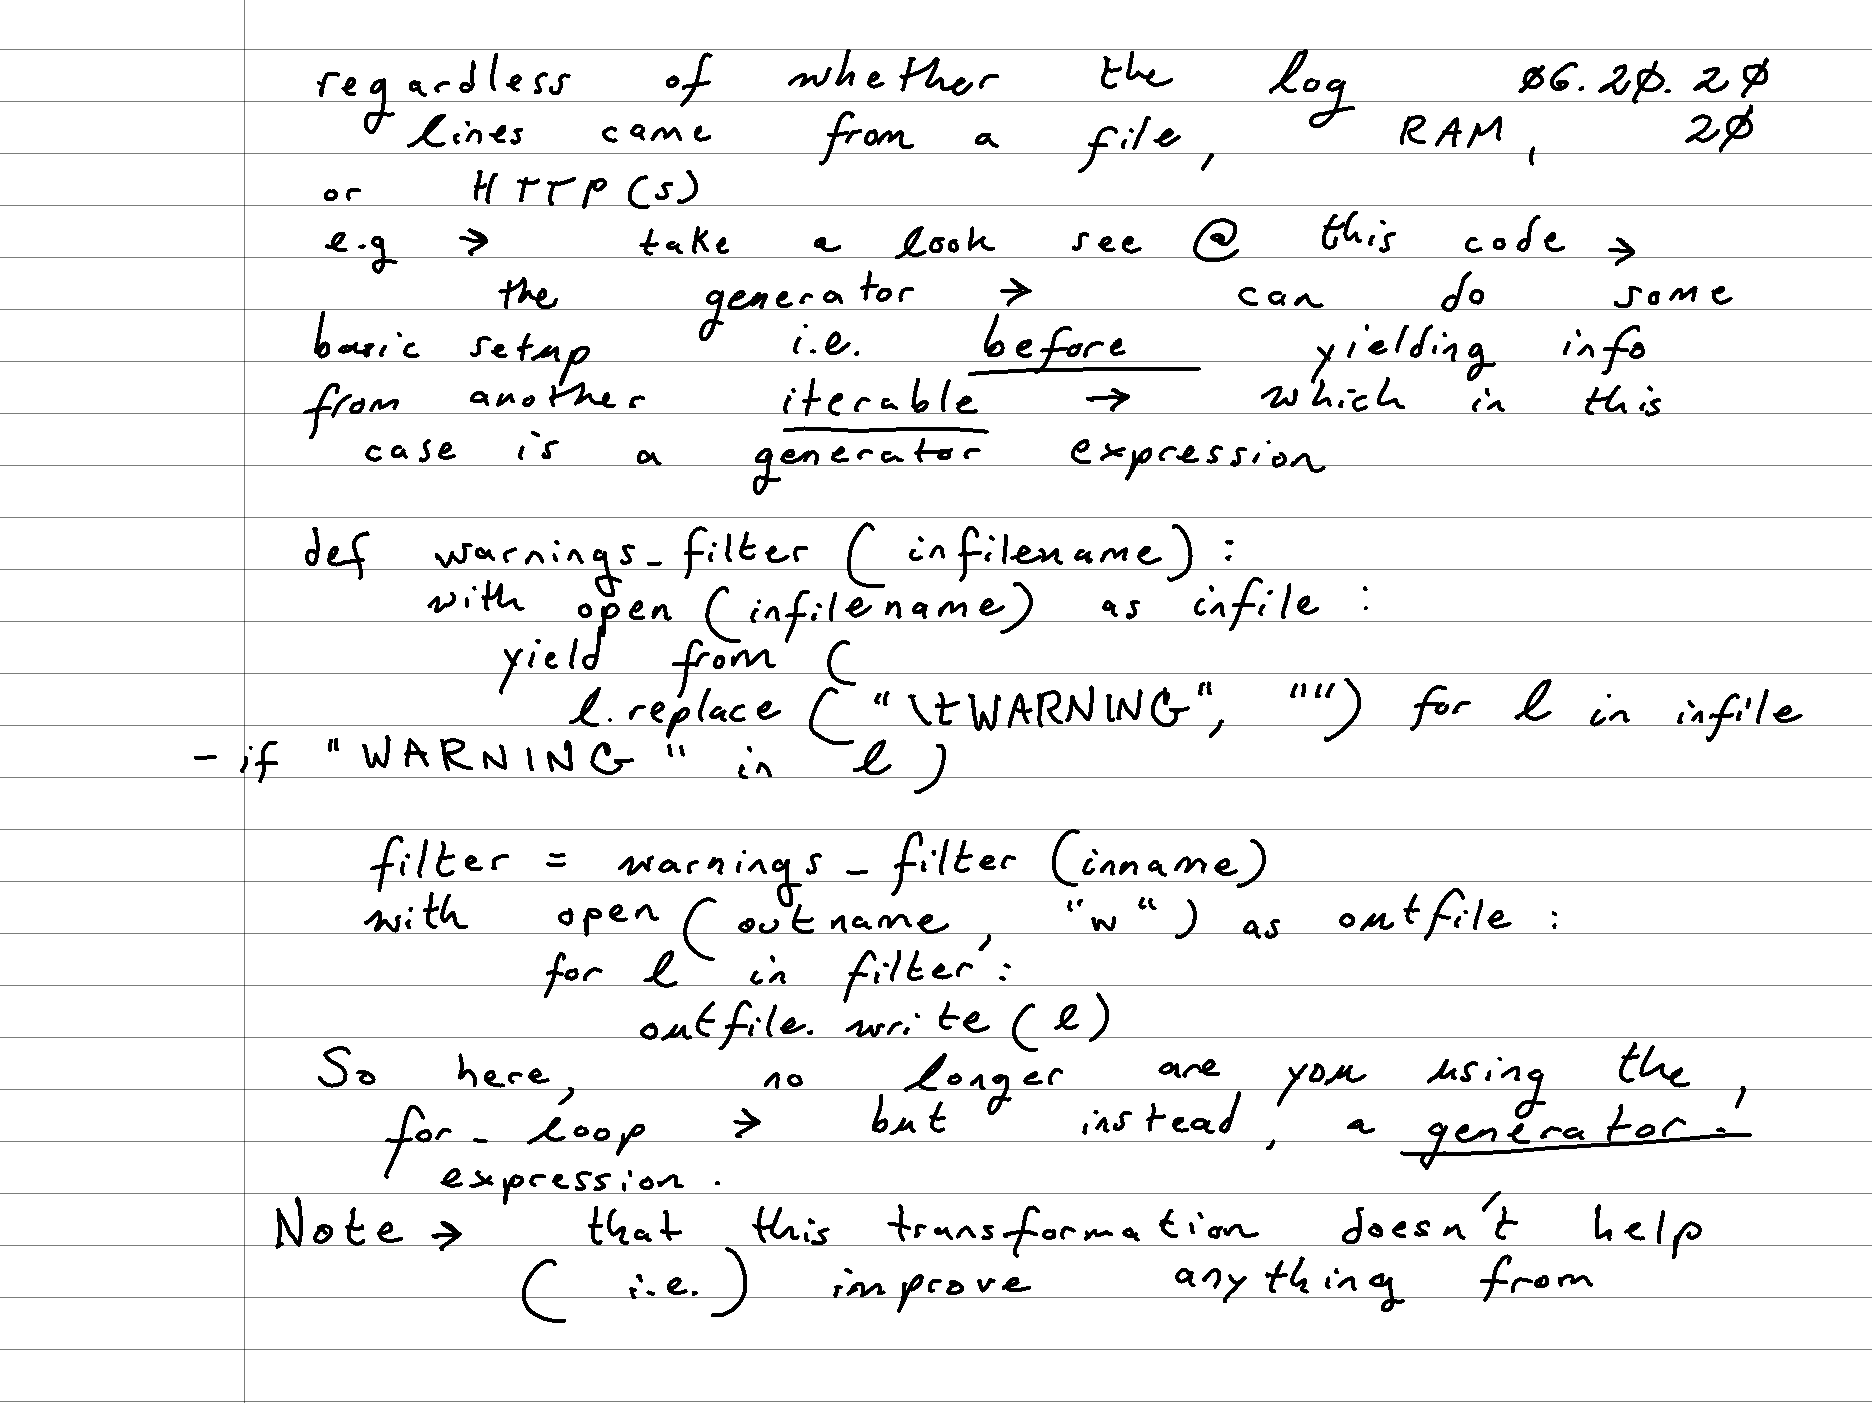 regardless of whether the log 06.20.20
lines came from a file, RAM, 20
or HTTP(s)
e.g → take a look see @ this code →
the generator → can do some
basic setup i.e. before yielding info
from another iterable → which in this
case is a generator expression
def warnings_filter (infilename):
with open (infilename) as infile:
yield from (
l.replace ("\tWARNING", "") for l in infile
- if "WARNING" in l)
filter = warnings_filter (inname)
with open (outname, "w") as outfile:
for l in filter:
outfile.write(l)
So here, no longer are you using the
for-loop → but instead, a generator!
expression.
Note → that this transformation doesn't help
(i.e.) improve anything from